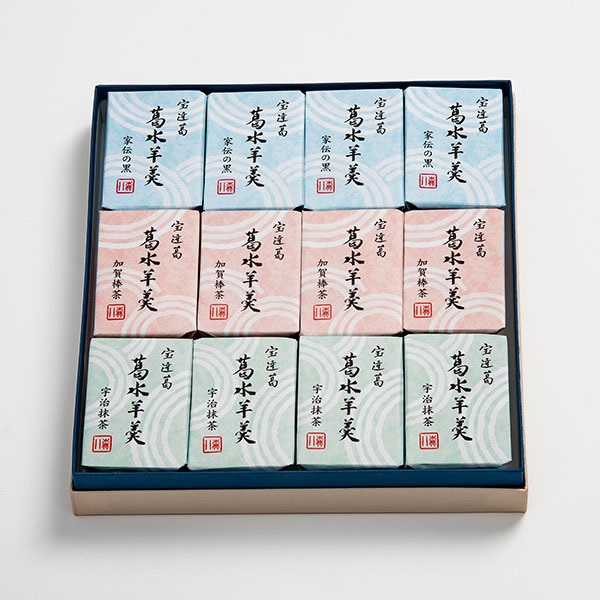 宝達葛
葛水羊羹
家伝の黒
宝達葛
葛水羊羹
家伝の黒
宝達葛
葛水羊羹
家伝の黒
宝達葛
葛水羊羹
家伝の黒
宝達葛
葛水羊羹
加賀棒茶
宝達葛
葛水羊羹
加賀棒茶
宝達葛
葛水羊羹
加賀棒茶
宝達葛
葛水羊羹
加賀棒茶
宝達葛
葛水羊羹
宇治抹茶
宝達葛
葛水羊羹
宇治抹茶
宝達葛
葛水羊羹
宇治抹茶
宝達葛
葛水羊羹
宇治抹茶